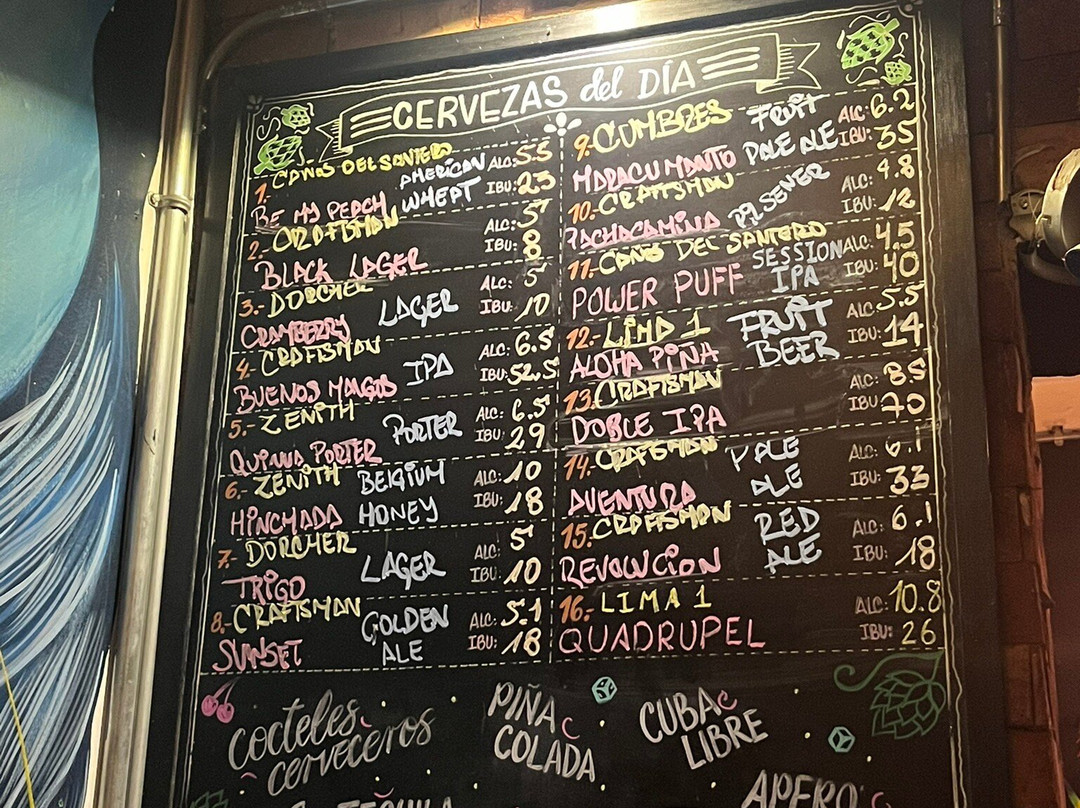 CERVEZAS del DÍA
1.- CAÑOS DEL SANTERO
BE MY PEACH AMERICAN WHEAT ALC: 5.5 IBU: 23
2.- CRAFTSMAN
BLACK LAGER ALC: 5 IBU: 8
3.- DORCHER
CRAMBERRY LAGER ALC: 5 IBU: 10
4.- CRAFTSMAN
BUENOS MANGOS IPA ALC: 6.5 IBU: 52.5
5.- ZENITH
QUINUA PORTER PORTER ALC: 6.5 IBU: 29
6.- ZENITH
HINCHADA BELGIUM HONEY ALC: 10 IBU: 18
7.- DORCHER
TRIGO LAGER ALC: 5 IBU: 10
8.- CRAFTSMAN
SUNSET GOLDEN ALE ALC: 5.1 IBU: 18
9.- CUMBRES
MARACUMANTO FRUIT PALE ALE ALC: 6.2 IBU: 35
10.- CRAFTSMAN
PACHACAMINA PILSENER ALC: 4.8 IBU: 12
11.- CAÑOS DEL SANTERO
POWER PUFF SESSION IPA ALC: 4.5 IBU: 40
12.- LIMA 1
ALOHA PIÑA FRUIT BEER ALC: 5.5 IBU: 14
13.- CRAFTSMAN
DOBLE IPA ALC: 8.5 IBU: 70
14.- CRAFTSMAN
AVENTURA PALE ALE ALC: 6.1 IBU: 33
15.- CRAFTSMAN
REVOLUCIÓN RED ALE ALC: 6.1 IBU: 18
16.- LIMA 1
QUADRUPEL ALC: 10.8 IBU: 26
cocteles cerveceros
PIÑA COLADA
CUBA LIBRE
TEQUILA
APERO